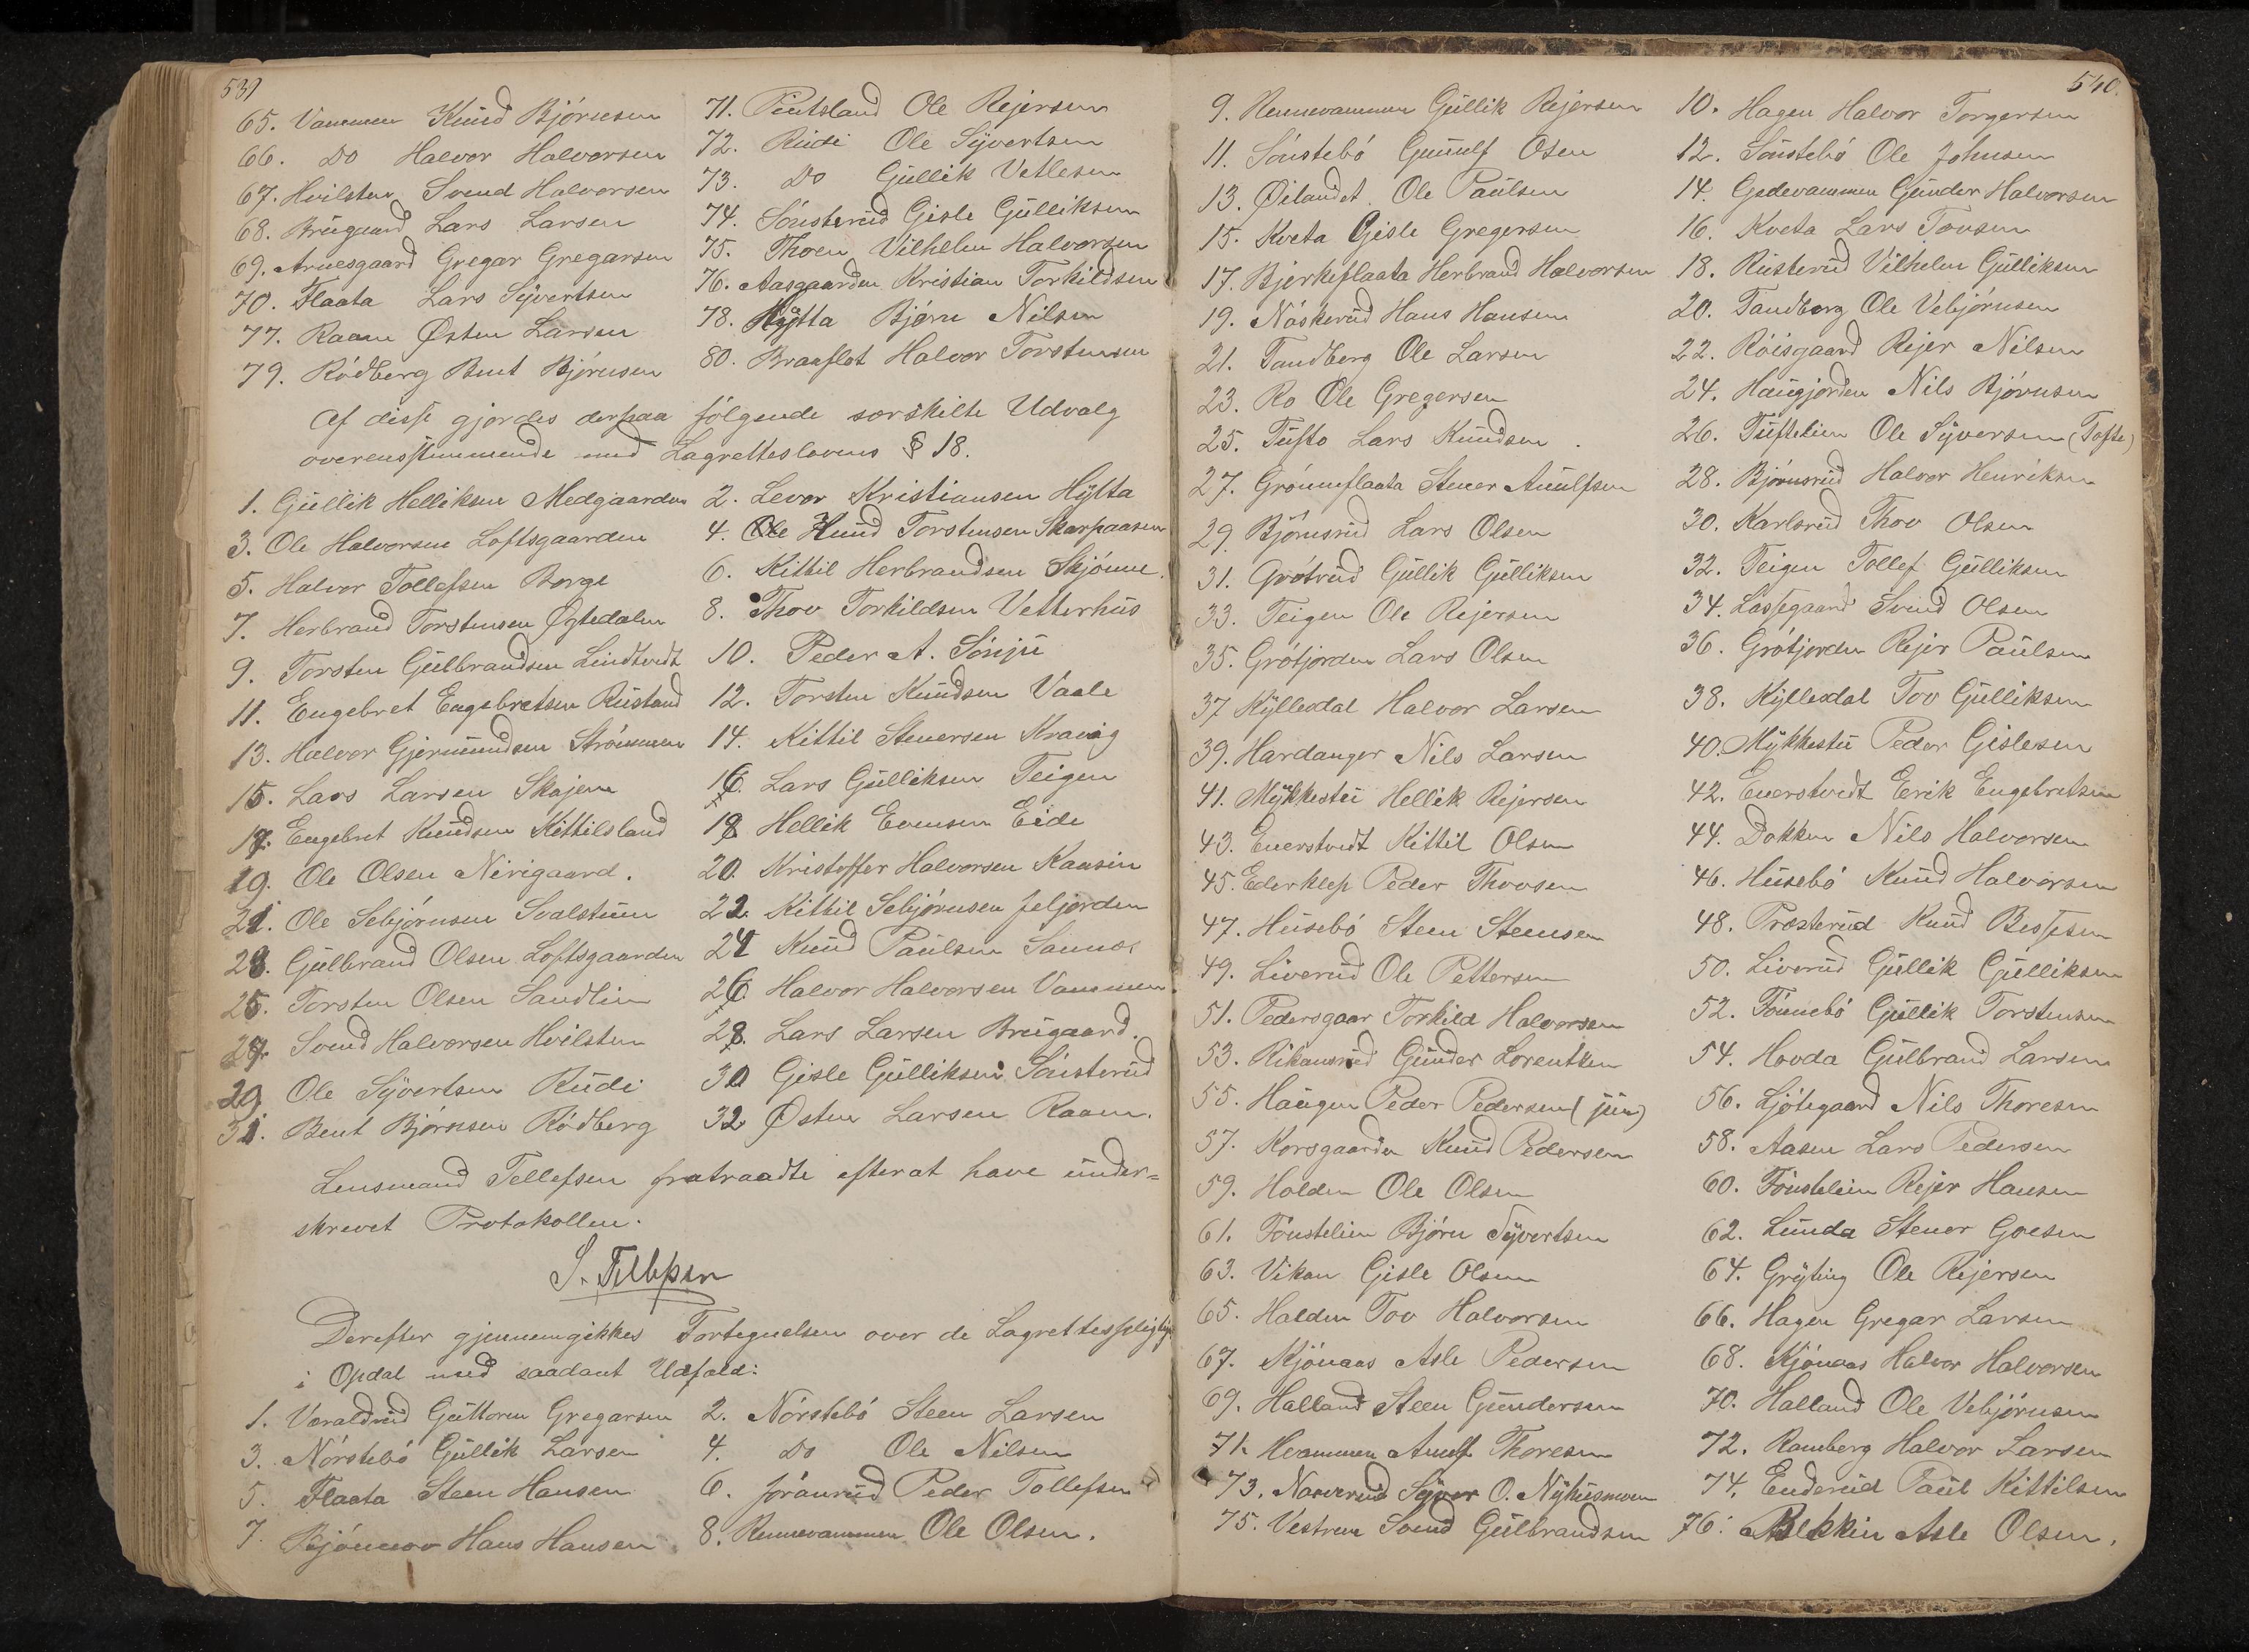 539
65. Vammen Knud Bjørnsen 71. Ole Rejersen
66. Do Halvor Halvorsen 72. Rudi Ole Syvertsen
67. Hvilsten Svend Halvorsen 73. Do Gullik Vetlesen
68. Brugaard Lars Larsen 74. Sønsterud Gisle Gulliksen
69. Arnesgaard Gregar Gregarsen 75. Thoen Vilhelm Halvorsen
70. Flaata Lars Syvertsen 76. Aasgaarden Kristian Torkildsen
77. Raaen Østen Larsen 78. Hytta Bjørn Nilsen
79. Rødberg Bent Bjørnsen 80. Braaflot Halvor Torstensen
Af disse gjordes derpaa følgende særskilte Udvalg
overensstemmende med Lagretteslovens § 18.
1. Gullik Helliksen Medgaarden 2. Levor Kristiansen Hytta
3. Ole Halvorsen Loftsgaarden 4. Knud Torstensen Skarpaasen
5. Halvor Tollefsen Borge 6. Kittil Herbrandsen Skjønne.
7. Herbrand Torstensen Øgtedalen 8. Thov Torkildsen Vetterhus
9. Torsten Gulbrandsen Lindtvedt 10. Peder A. Sønju
11. Engebret Engebretsen Rustand 12. Torsten Knudsen Vaale
13. Halvor Gjermundsen Strømmen 14. Kittil Stenersen Kravig
15. Lars Larsen Skajem 16. Lars Gulliksen Teigen
17. Engebret Knudsen Kittilsland 18. Hellik Evensen Eide
19. Ole Olsen Nirigaard. 20. Kristoffer Halvorsen Kaasin
21. Ole Sebjørnsen Svalstuen 22. Kittil Sebjørnsen Jeljorden
23. Gulbrand Olsen Loftsgaarden 24 Knud Paulsen Sannes
25. Torsten Olsen Sandlien 26. Halvor Halvorsen Vammen
27. Svend Halvorsen Hvilsten 28. Lars Larsen Brugaard.
29 Ole Syvertsen Rudi 30 Gisle Gulliksen Sønsterud
31. Bent Bjørnsen Rødberg 32 Østen Larsen Raaen.
Lensmand Tellefsen fratraadte efterat have under-
skrevet Protokollen.
S. Tellefsen
Derefter gjennemgikkes Fortegnelsen over de Lagrettespligtige
i Opdal med saadant Udfald:
1. Varaldrud Guttorm Gregarsen 2. Nørstebø Steen Larsen
3. Nørstebø Gullik Larsen 4. Do Ole Nilsen
5. Flaata Steen Hansen 6. Jøranrud Peder Tollefsen
7. Hans Hansen 8. Rennevammen Ole Olsen.
540.
9. Rennevammen Gullik Rejersen 10. Hagen Halvor Torgersen
11. Sønstebø Gunulf Osen 12. Sønstebø Ole Johnsen
13. Øilandet Ole Paulsen 14. Gjedevammen Gunder Halvorsen
15. Kveta Gisle Gregersen 16. Kveta Lars Tovsen
17. Bjerkeflaata Herbrand Halvorsen 18. Rusterud Vilhelm Gulliksen
19. Nøskerud Hans Hansen 20. Tandberg Ole Vebjørnsen
21. Tandberg Ole Larsen 22. Røisgaard Rejer Nilsen
23. Ro Ole Gregersen 24. Haugjorden Nils Bjørnsen
25. Tufto Lars Knudsen 26. Tuftelien Ole Syversen (Tofte)
27. Grønneflaata Stener Anulfsen 28. Bjørnsrud Halvor Henriksen
29. Bjørnsrud Lars Olsen 30. Karlsrud Thov Olsen
31. Grøtrud Gullik Gulliksen 32. Teigen Tollef Gulliksen
33. Teigen Ole Rejersen 34. Lassegaard Svend Olsen
35. Grøtjorden Lars Olsen 36. Grøtjorden Rejer Paulsen
37 Kyllesdal Halvor Larsen 38. Kyllesdal Tov Gulliksen
39. Hardanger Nils Larsen 40. Mykkestu Peder Gislesen
41. Mykkestu Hellik Rejersen 42. Enerstvedt Eerik Engebretsen
43. Enerstvedt Kittil Olsen 44. Dokken Nils Halvorsen
45. Ederklep Peder Thovsen 46. Husebø Knud Halvorsen
47. Husebø Steen Steensen 48. Præsterud Knud Bessesen
49. Liverud Ole Pettersen 50. Liverud Gullik Gulliksen
51. Pedersgaar Torkild Halvorsen 52. Fønnebø Gullik Torstensen
53. Rikansrud Gunder Lorentsen 54. Hovda Gulbrand Larsen
55. Haugen Peder Pedersen (jun) 56. Ljøtegaard Nils Thoresen
57. Korsgaarden Knud Pedersen 58. Aasen Lars Pedersen
59. Holden Ole Olsen 60. Fønstelien Rejer Hansen
61. Fønstelien Bjørn Syvertsen 62. Lunda Stener Goesen
63. Vikan Gisle Olsen 64. Grøting Ole Rejersen
65. Halden Tov Halvorsen 66. Hagen Gregar Larsen
67. Kjønaas Asle Pedersen 68. Kjønaas Halvor Halvorsen
69. Halland Steen Gundersen 70. Halland Ole Vebjørnsen
71. Hvammen Anulf Thoresen 72. Ramberg Halvor Larsen
73. Narverud Syver O. Nyhusmoen 74. Enderud Paul Kittilsen
75. Vestrum Svend Gulbrandsen 76. Blekkin Asle Olsen.